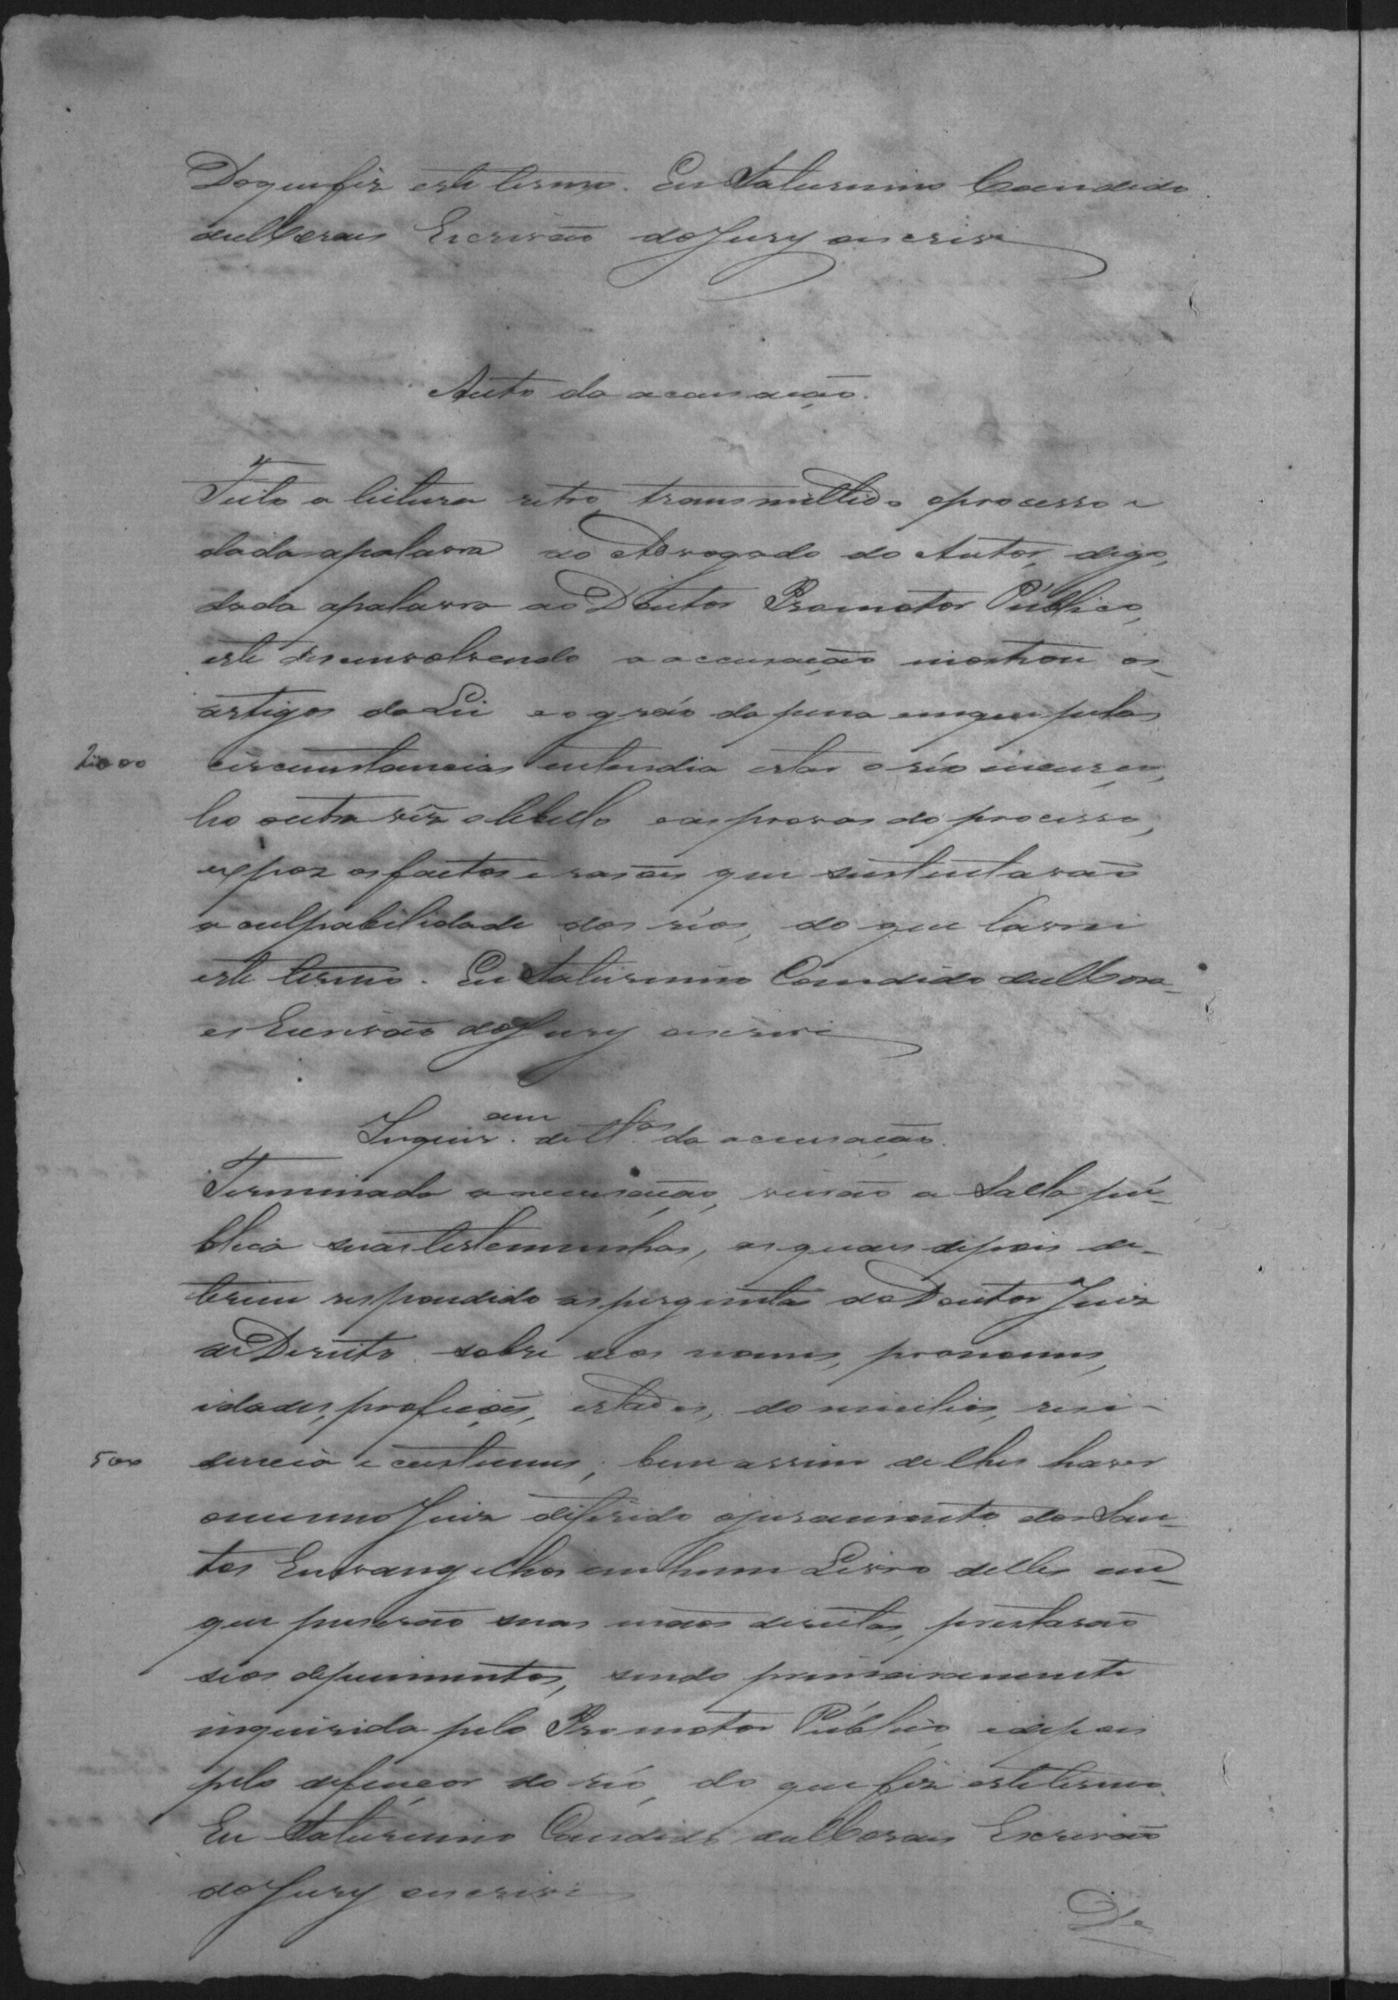 Do que fiz este termo. Eu Saturnino Candido
de Moraes Escrivão do Jury o escrivi
Auto da acousação.
Feita a leitura retro, transmittido o processo e
dada apalavra ao Advogado do Autor, digo,
dada apalavra ao Doutor Promotor Público,
este desenvolvendo a accusação mostrou os
artigos da Lei e o gráo da pena em que pelas
2000 circunstancias entendia estar o réo incurso,
leo outra vêz o libello e as provas do processo,
expoz os factos e rasões que sustentavão
a culpabilidade dos réos, do que lavrei
este termo. Eu Saturnino Candido de Mora_
es Escrivão do Jury o escrivi
Inquir.am de Tas da accusação.
Terminada a accusação, vierão a Salla pú_
blica suas testemunhas, as quaes depois de_
terem respondido as perguntas do Doutor Juiz
de Dereito sobre seos nomes, pronomes,
idades, profições, estados, domicilios, resi_
500 dencia e custumes; bem assim de lhes haver
o mesmo Juiz diferido o juramento dos San_
tos Envangelhos em hum Livro delles em_
que puserão suas mãos direitas, prestarão
seos depuimentos, sendo primeiramente
inquirida pelo Promotor Público, e depois
pelo defençor do réo, do que fiz este termo.
Eu Saturnino Candido de Moraes Escrivão
do Jury o escrivi
De